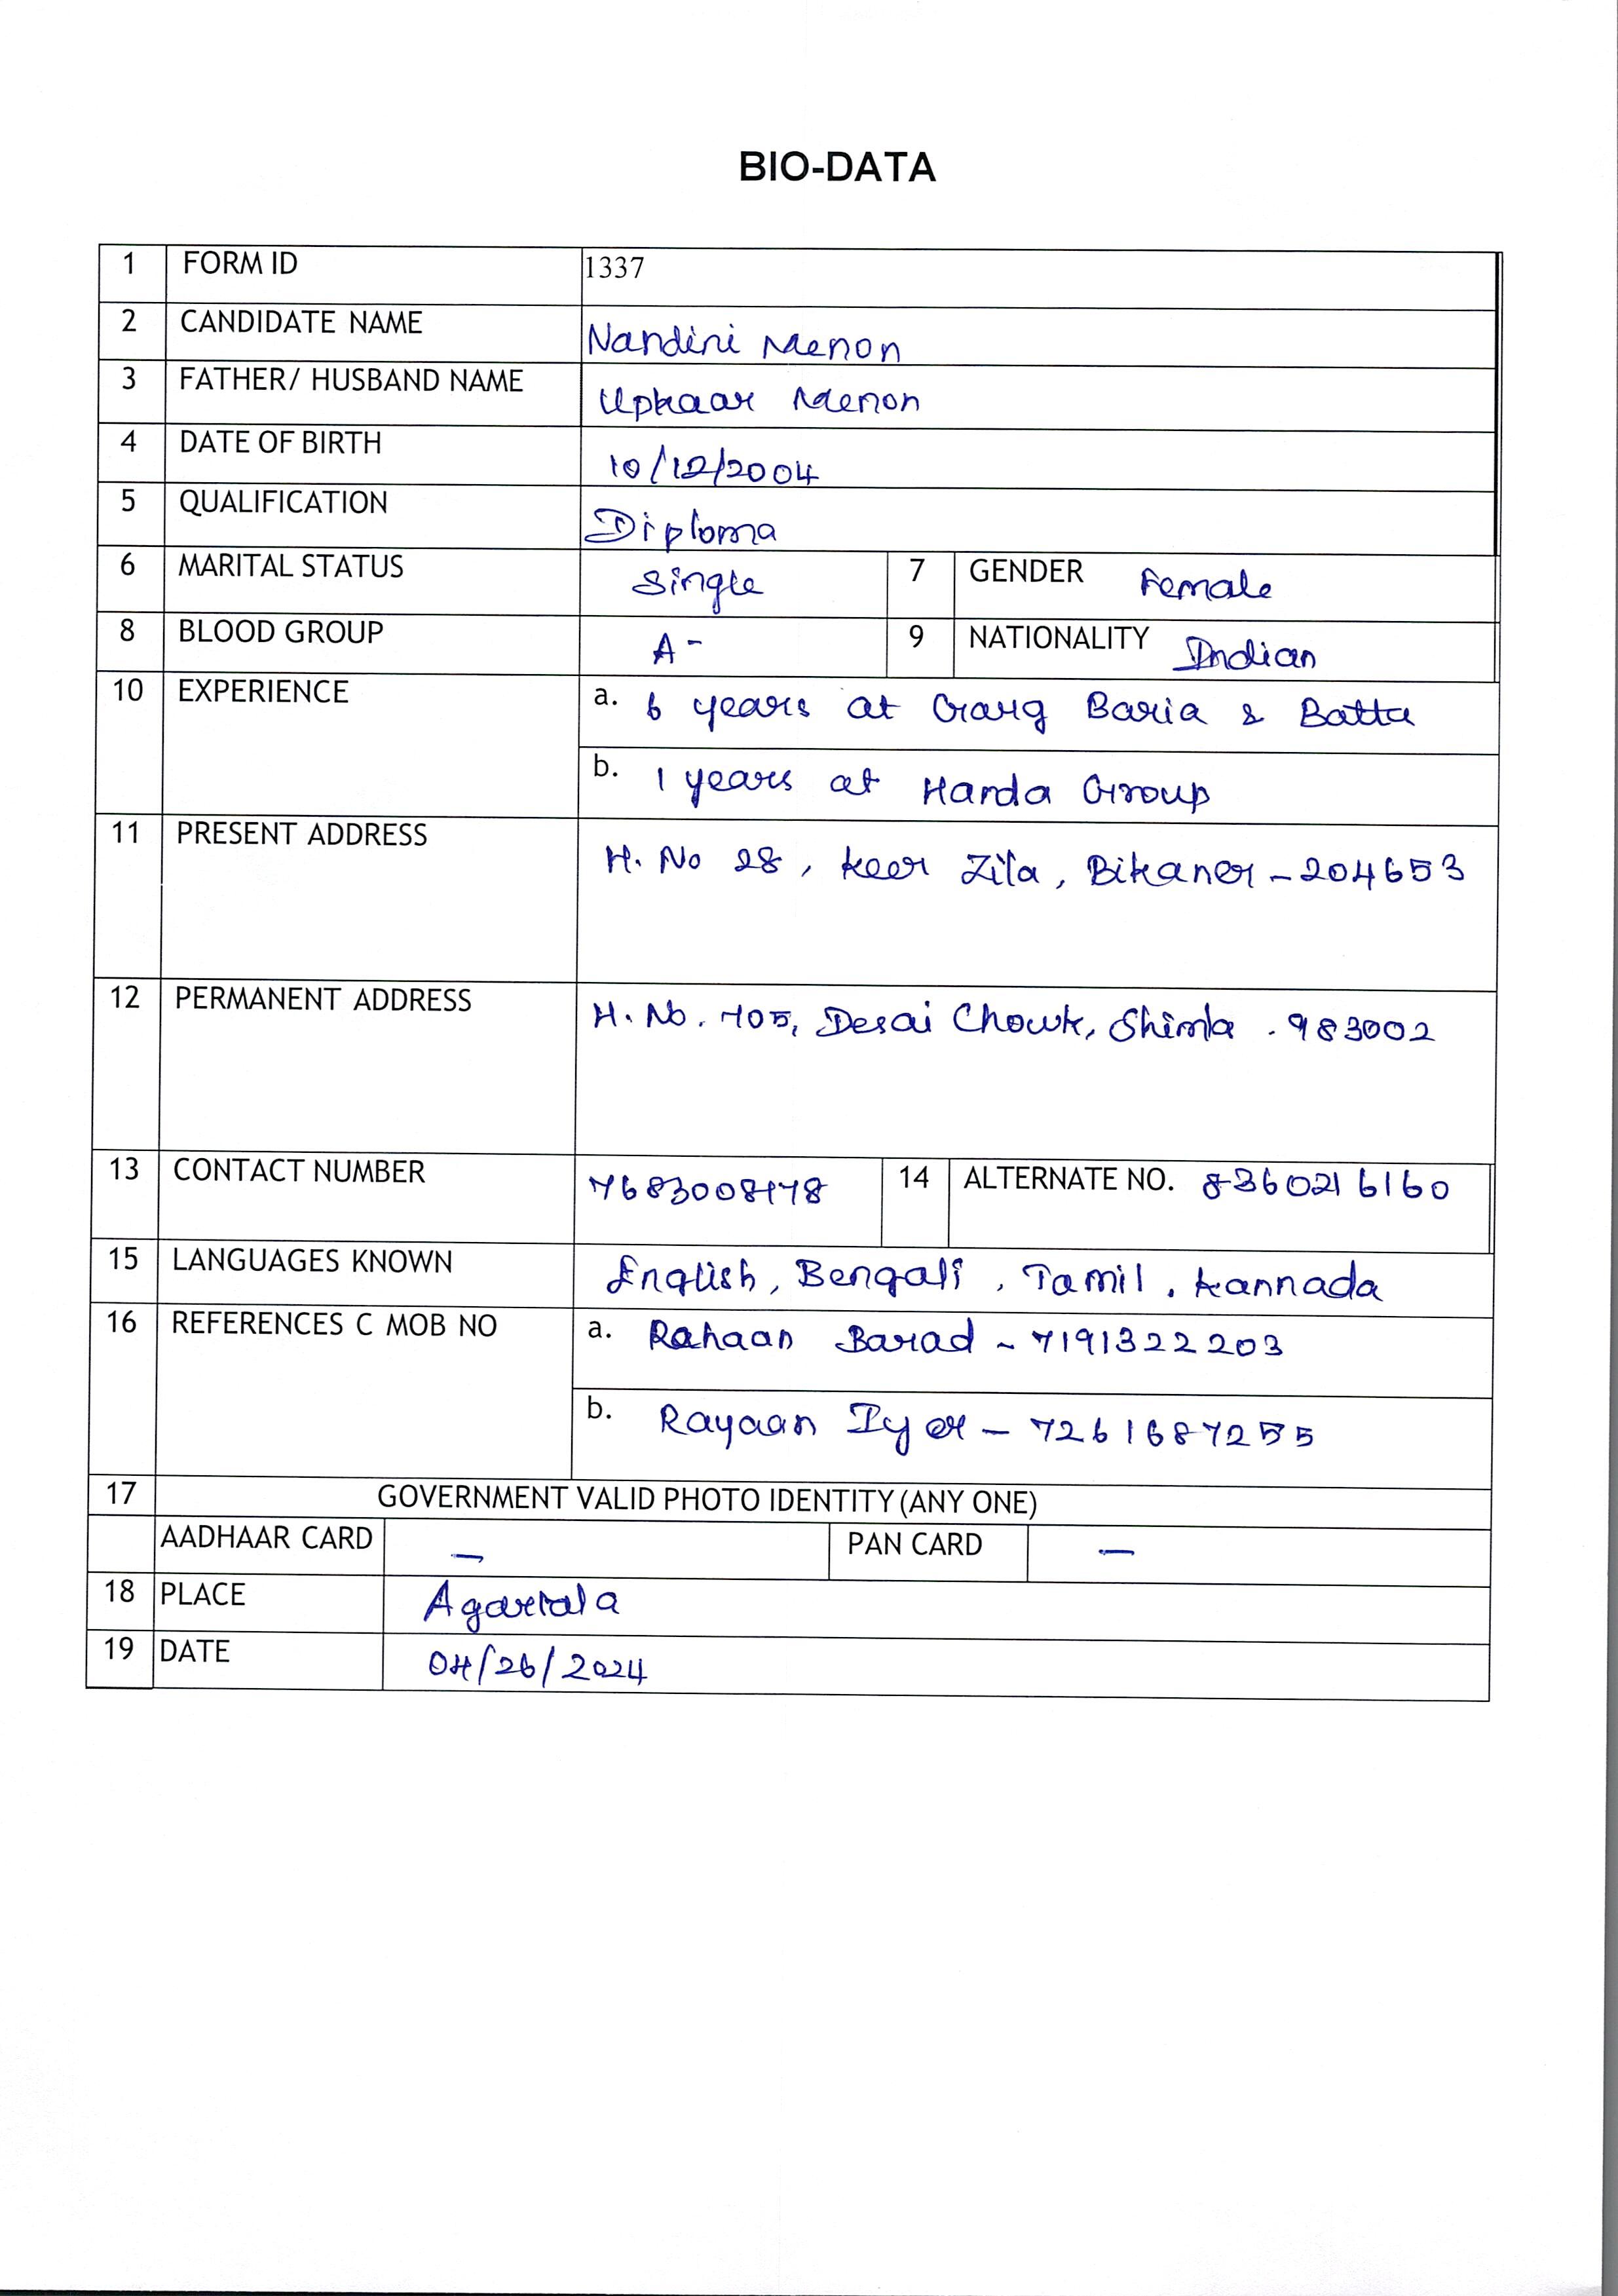 BIO-DATA
1 FORM ID 1337
2 CANDIDATE NAME Nandini Menon
3 FATHER/ HUSBAND NAME Upkaar Menon
4 DATE OF BIRTH 10/12/2004
5 QUALIFICATION Diploma
6 MARITAL STATUS Single 7 GENDER Female
8 BLOOD GROUP A- 9 NATIONALITY Indian
10 EXPERIENCE a. 6 years at Garg Baria & Batta
b. 1 years at Handa Group
11 PRESENT ADDRESS H. No 28, Keer Zila, Bikaner - 204653
12 PERMANENT ADDRESS H. No. 705, Desai Chowk, Shimla - 983002
13 CONTACT NUMBER 7683008178 14 ALTERNATE NO. 8360216160
15 LANGUAGES KNOWN English, Bengali, Tamil, Kannada
16 REFERENCES C MOB NO a. Rahaan Barad - 7191322203
b. Rayaan Iyer - 7261687255
17 GOVERNMENT VALID PHOTO IDENTITY (ANY ONE)
AADHAAR CARD - PAN CARD -
18 PLACE Agartala
19 DATE 04/26/2024